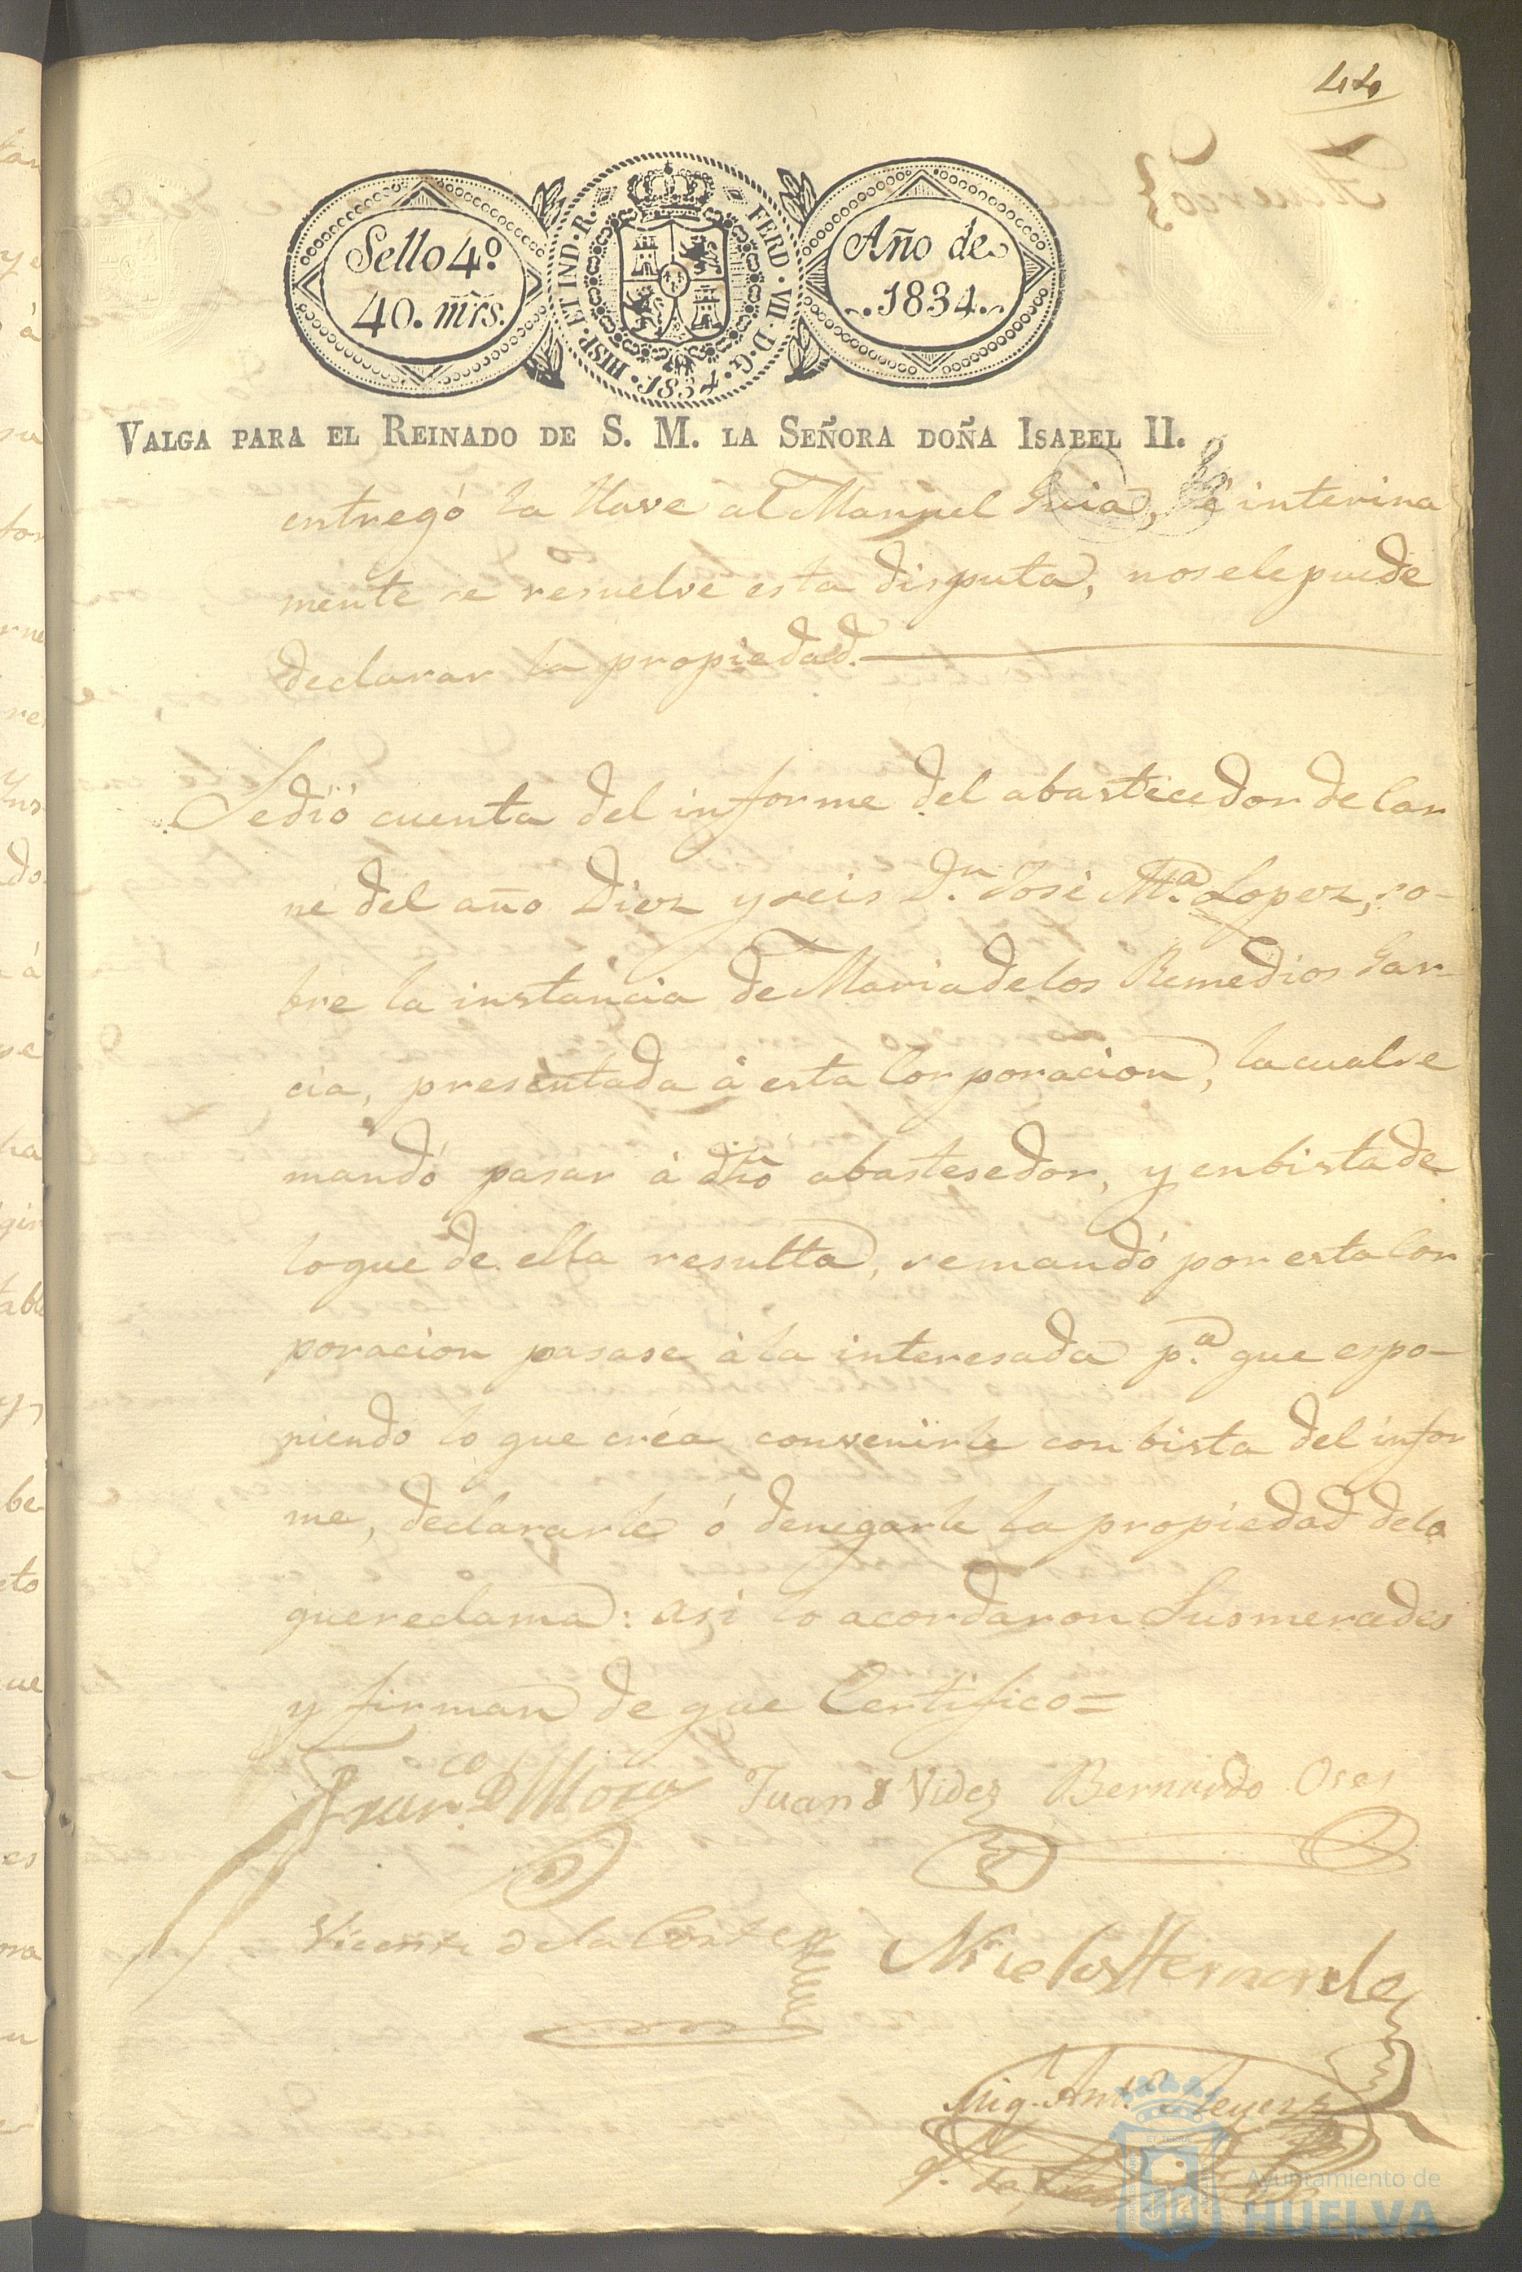 44
Sello 4º
40. mrs.
HISP. ET IND. R. FERD. VII. D. G. 1834.
Año de
1834.
VALGA PARA EL REINADO DE S. M. LA SEÑORA DOÑA ISABEL II.
entregó la llave al Manuel Guia, é interina
mente se resuelve esta disputa, nosele puede
declarar la propiedad.
Sedió cuenta del informe del abastecedor de Car
ne del año Diez y seis Dn. José Mª. Lopez, so-
bre la instancia de Maria de los Remedios Gar-
cia, presentada á esta Corporacion, la cual se
mandó pasar á dho abastesedor, y en bista de
lo que de ella resulta, semandó por esta Cor
poracion pasase á la interesada pª. que espo-
niendo lo que créa convenirle con bista del infor
me, declararle ó denegarle la propiedad dela
que reclama: asi lo acordaron Susmercedes
y firman de que Certifico=
Franco. Mora Juan Videz Bernardo Oses
Vicente de la Corte
Nicolas Hernandez
Mig. Antº. Reyes
Ayuntamiento de
HUELVA